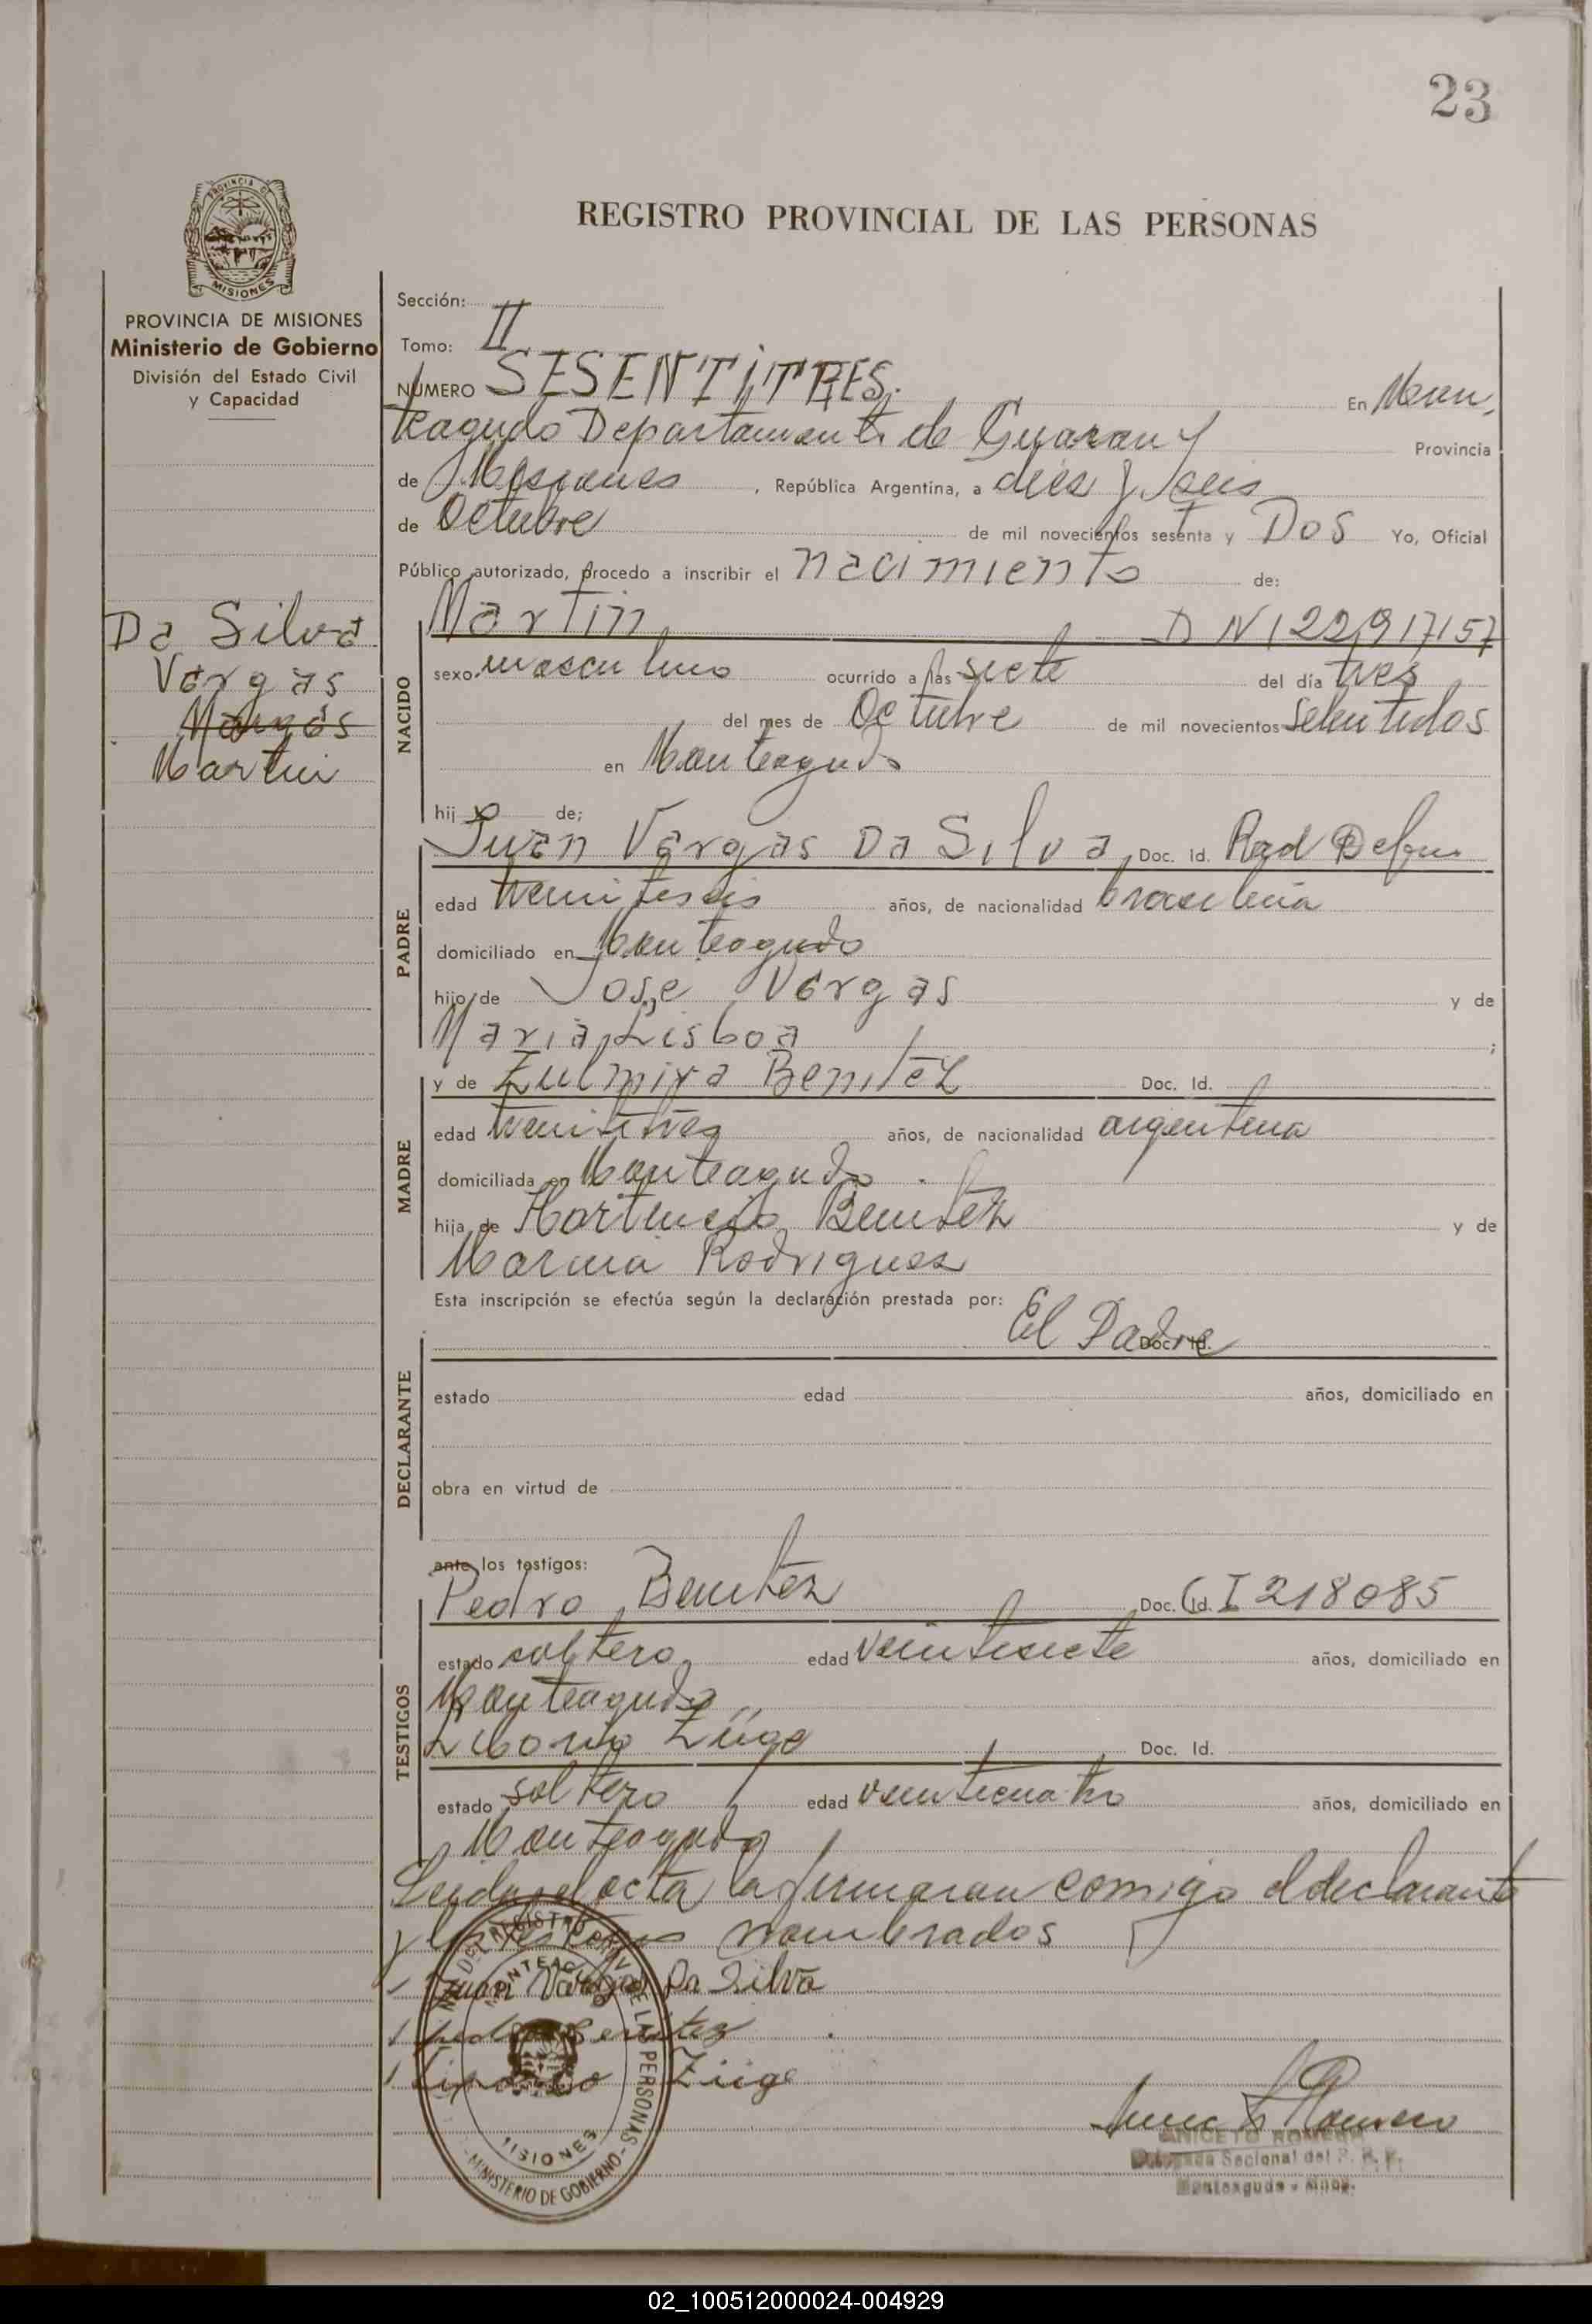 23
REGISTRO PROVINCIAL DE LAS PERSONAS
PROVINCIA DE MISIONES
Ministerio de Gobierno
División del Estado Civil
y Capacidad
Da Silva
Vargas
Martin
Sección:
Tomo: II
NÚMERO SESENTITRES. En Mon,
teagudo Departamento de Guarany Provincia
de Misiones, República Argentina, a dies y seis
de Octubre de mil novecientos sesenta y Dos Yo, Oficial
Público autorizado, procedo a inscribir el nacimiento de:
NACIDO
Martin D N I 22,917,157
sexo masculino ocurrido a las siete del día tres
del mes de Octubre de mil novecientos
en Monteagudo
hijo de;
PADRE
Juan Vargas Da Silva, Doc. Id. Rad
edad treintiseis años, de nacionalidad brasileña
domiciliado en Monteagudo
hijo de Jose Vargas y de
Maria Lisboa ;
MADRE
y de Zulmira Benitez Doc. Id.
edad treintitres años, de nacionalidad argentina
domiciliada en Monteagudo
hija de Hortencio Benitez y de
Marina Rodriguez
Esta inscripción se efectúa según la declaración prestada por:
DECLARANTE
El Padre Doc. Id.
estado edad años, domiciliado en
obra en virtud de
ante los testigos:
TESTIGOS
Pedro Benitez Doc. Id. C I 218085
estado soltero edad veintisiete años, domiciliado en
Monteagudo
Liborio Züge Doc. Id.
estado soltero edad veinticuatro años, domiciliado en
Monteagudo
Leida el acta la firmaran comigo el declarante
y los testigos nombrados
Juan Vargas Da Silva
Pedro Benitez
Züge
REGISTRO PROV. DE LAS PERSONAS
MONTEAGUDO
MISIONES
MINISTERIO DE GOBIERNO
ANICETO ROMERO
Delegada Secional del R. P. P.
Monteagudo - Mnes.
02_100512000024-004929